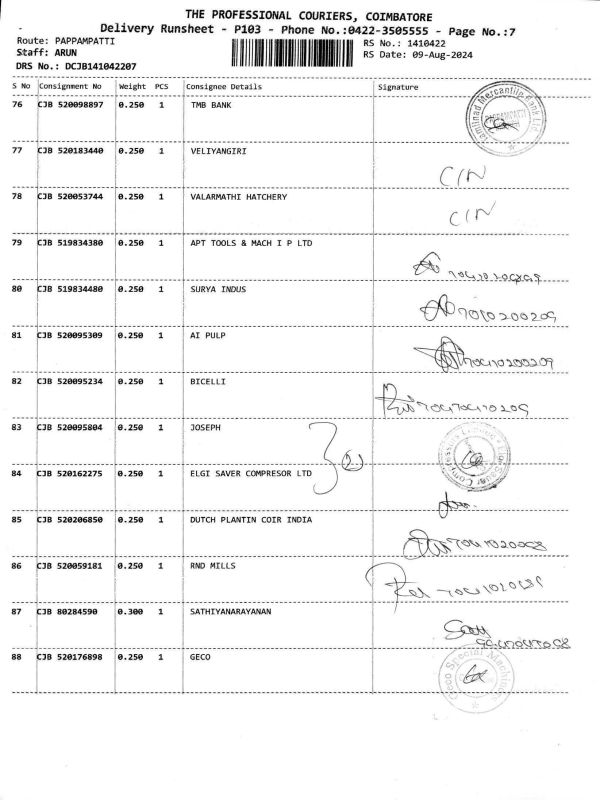 THE PROFESSIONAL COURIERS, COIMBATORE
Delivery Runsheet - P103 - Phone No.:0422-3505555 - Page No.:7
Route: PAPPAMPATTI
RS No.: 1410422
Staff: ARUN
RS Date: 09-Aug-2024
DRS No.: DCJB141042207
S No Consignment No Weight PCS Consignee Details Signature
76 CJB 520098897 0.250 1 TMB BANK
Tamilnad Mercantile Bank Ltd.
PAPPAMPATTI
77 CJB 520183440 0.250 1 VELIYANGIRI
C/N
78 CJB 520053744 0.250 1 VALARMATHI HATCHERY
C/N
79 CJB 519834380 0.250 1 APT TOOLS & MACH I P LTD
80 CJB 519834480 0.250 1 SURYA INDUS
7010200209
81 CJB 520095309 0.250 1 AI PULP
82 CJB 520095234 0.250 1 BICELLI
83 CJB 520095804 0.250 1 JOSEPH
84 CJB 520162275 0.250 1 ELGI SAVER COMPRESOR LTD
85 CJB 520206850 0.250 1 DUTCH PLANTIN COIR INDIA
86 CJB 520059181 0.250 1 RND MILLS
87 CJB 80284590 0.300 1 SATHIYANARAYANAN
88 CJB 520176898 0.250 1 GECO
Geco Special Machines